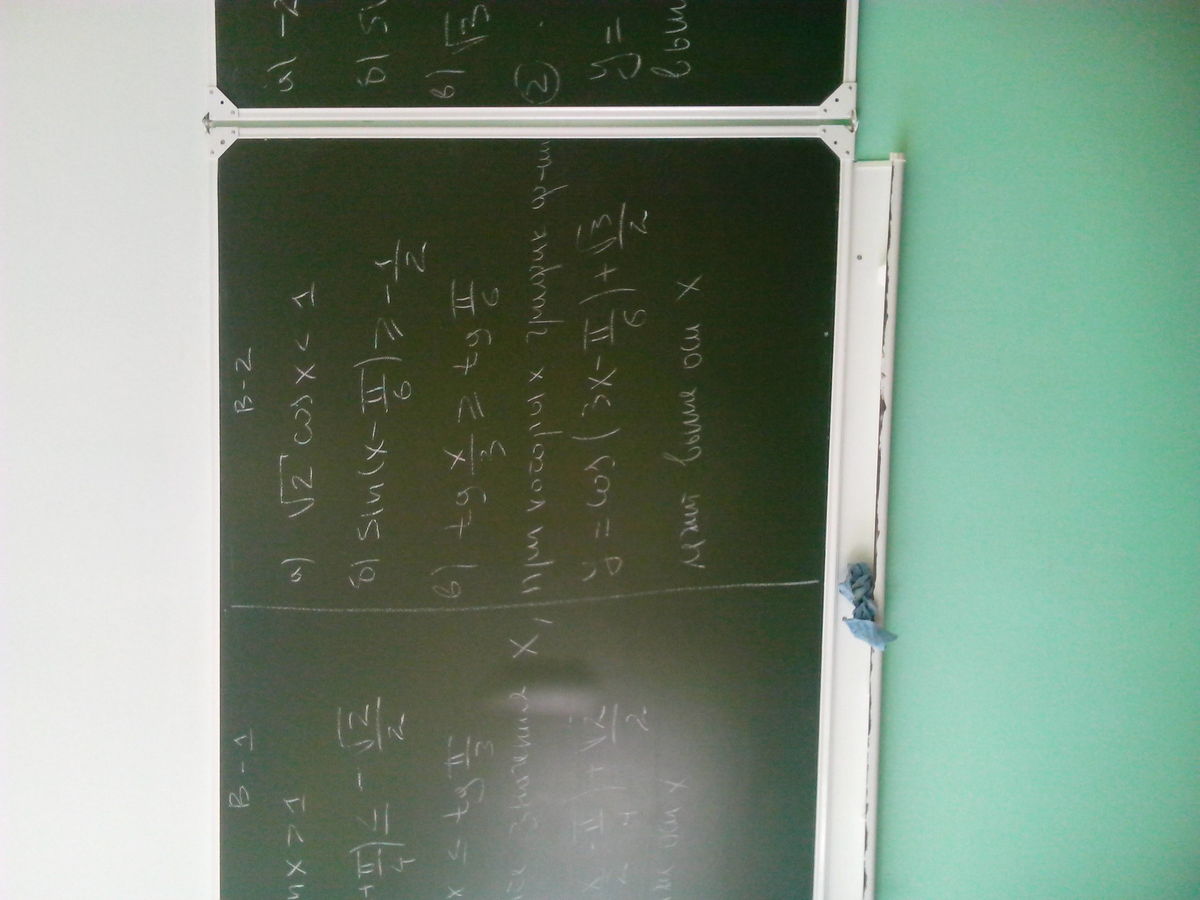 В-1
nx > 1
+ π/4) ≤ - √2/2
x ≤ tg π/3
значения x,
x/2 - π/4) + √2/2
оси x
В-2
а) √2 cos x < 1
б) sin(x - π/6) ≥ - 1/2
в) tg x/3 ≥ tg π/6
при которых график ф-ии
y = cos(3x - π/6) + √3/2
лежит выше оси x
а) -2
б) si
в) √3
②
y =
выш